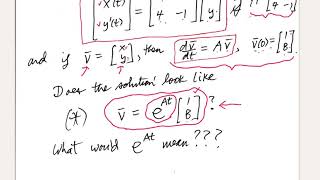 x'(t)
y'(t) = 4 -1 y
and if v̄ = [x y], then dv̄/dt = Av̄, v̄(0) = [1 B]
Does the solution look like
(*) v̄ = e^{At} [1 B] ?
What would e^{At} mean ???